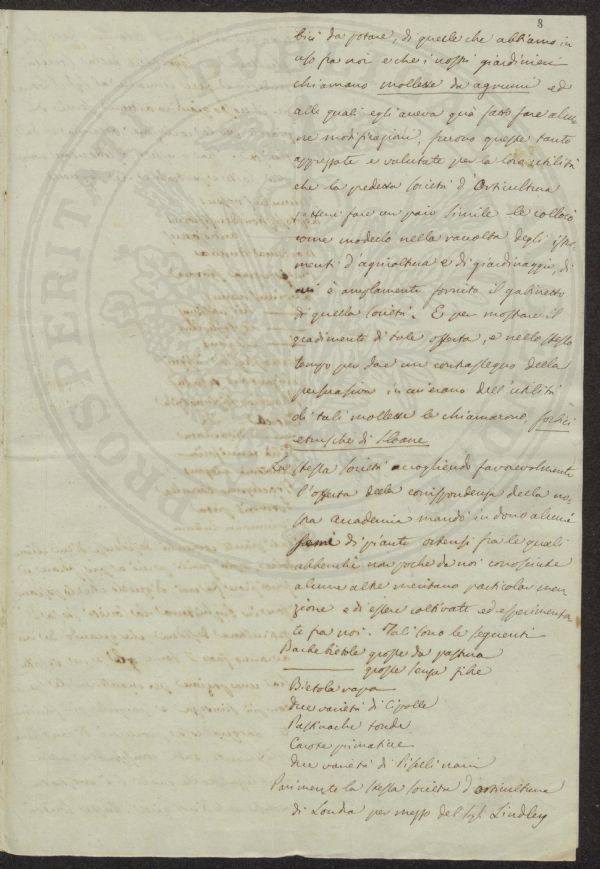 8
bici da potare, di quelle che abbiamo in
uso fra noi e che i nostri giardinieri
chiamano mollesse da agrumi ed
alle quali egli aveva già fatto fare alcu
ne modificazioni, furono queste tanto
apprezzate e valutate per la loro utilità
che la predetta Società d'Orticultura
fattone fare un paio simile le collocò
come modello nella raccolta degli istru
menti d'agricoltura e di giardinaggio, di
cui è amplamente fornito il gabinetto
di quella Società. E per mostrare il
gradimento di tale offerta, e nello stesso
tempo per dare un contrassegno della
persuasione in cui erano dell'utilità
di tali mollesse le chiamarono, forbici
etrusche di Sloane
La stessa Società accogliendo favorevolmente
l'offerta della corrispondenza della no
stra Accademia mandò in dono alcuni
semi di piante ortensi fra le quali
abbenchè non poche da noi conosciute
alcune altre meritano particolar men
zione e di essere coltivate ed esperimenta
te fra noi. Tali sono le seguenti
Barbe bietole grosse da pastura
grosse senza fibre
Bietola rapa
Due varietà di Cipolle
Pastinache tonde
Carote primaticce
Due varietà di Piselli nani
Parimente la stessa Società d'orticultura
di Londra per mezzo del Sig. Lindley
PROSPERITATI PUBLICAE